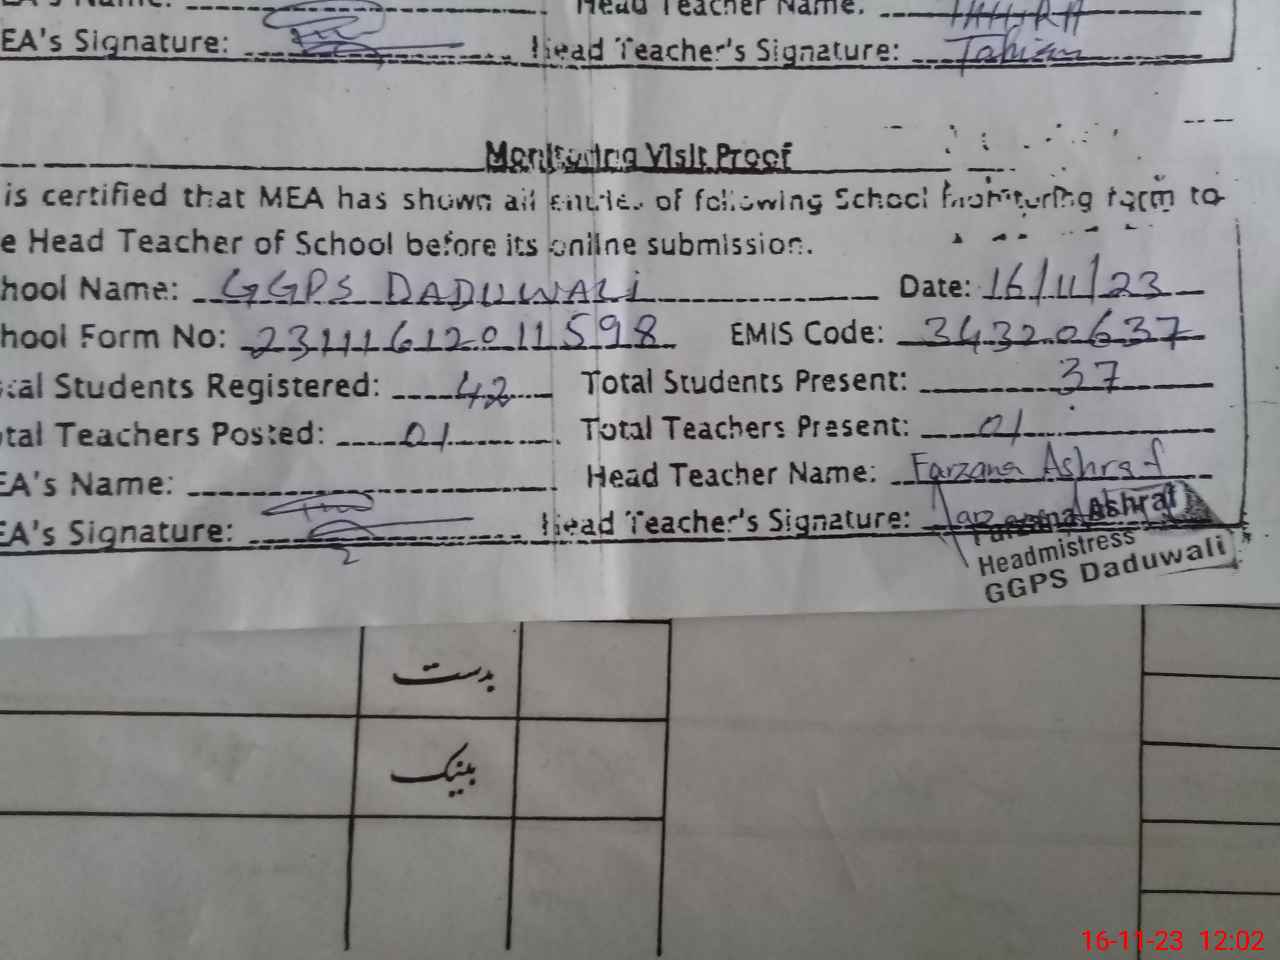 EA's Signature: Head Teacher Name:
Head Teacher's Signature: Tahira
Monitoring Visit Proof
is certified that MEA has shown all entries of following School monitoring form to
e Head Teacher of School before its online submission.
hool Name: GGPS DADUWALi Date: 16/11/23
hool Form No: 23111612011598 EMIS Code: 34320637
tal Students Registered: 42 Total Students Present: 37
tal Teachers Posted: 01 Total Teachers Present: 01
EA's Name: Head Teacher Name: Farzana Ashraf
EA's Signature: Head Teacher's Signature:
Farzana Ashraf
Headmistress
GGPS Daduwali
بدست
بینک
16-11-23 12:02